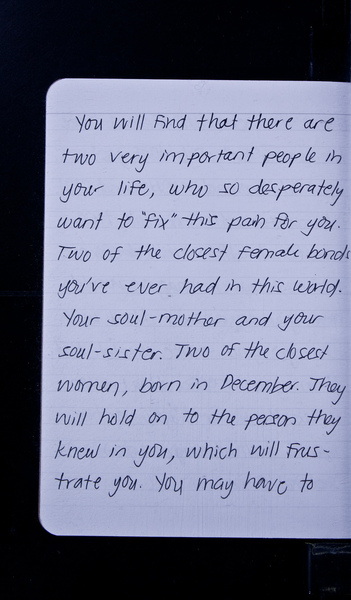 You will find that there are
two very important people in
your life, who so desperately
want to "fix" this pain for you.
Two of the closest female bonds
you've ever had in this world.
Your soul-mother and your
soul-sister. Two of the closest
women, born in December. They
will hold on to the person they
knew in you, which will frus-
trate you. You may have to